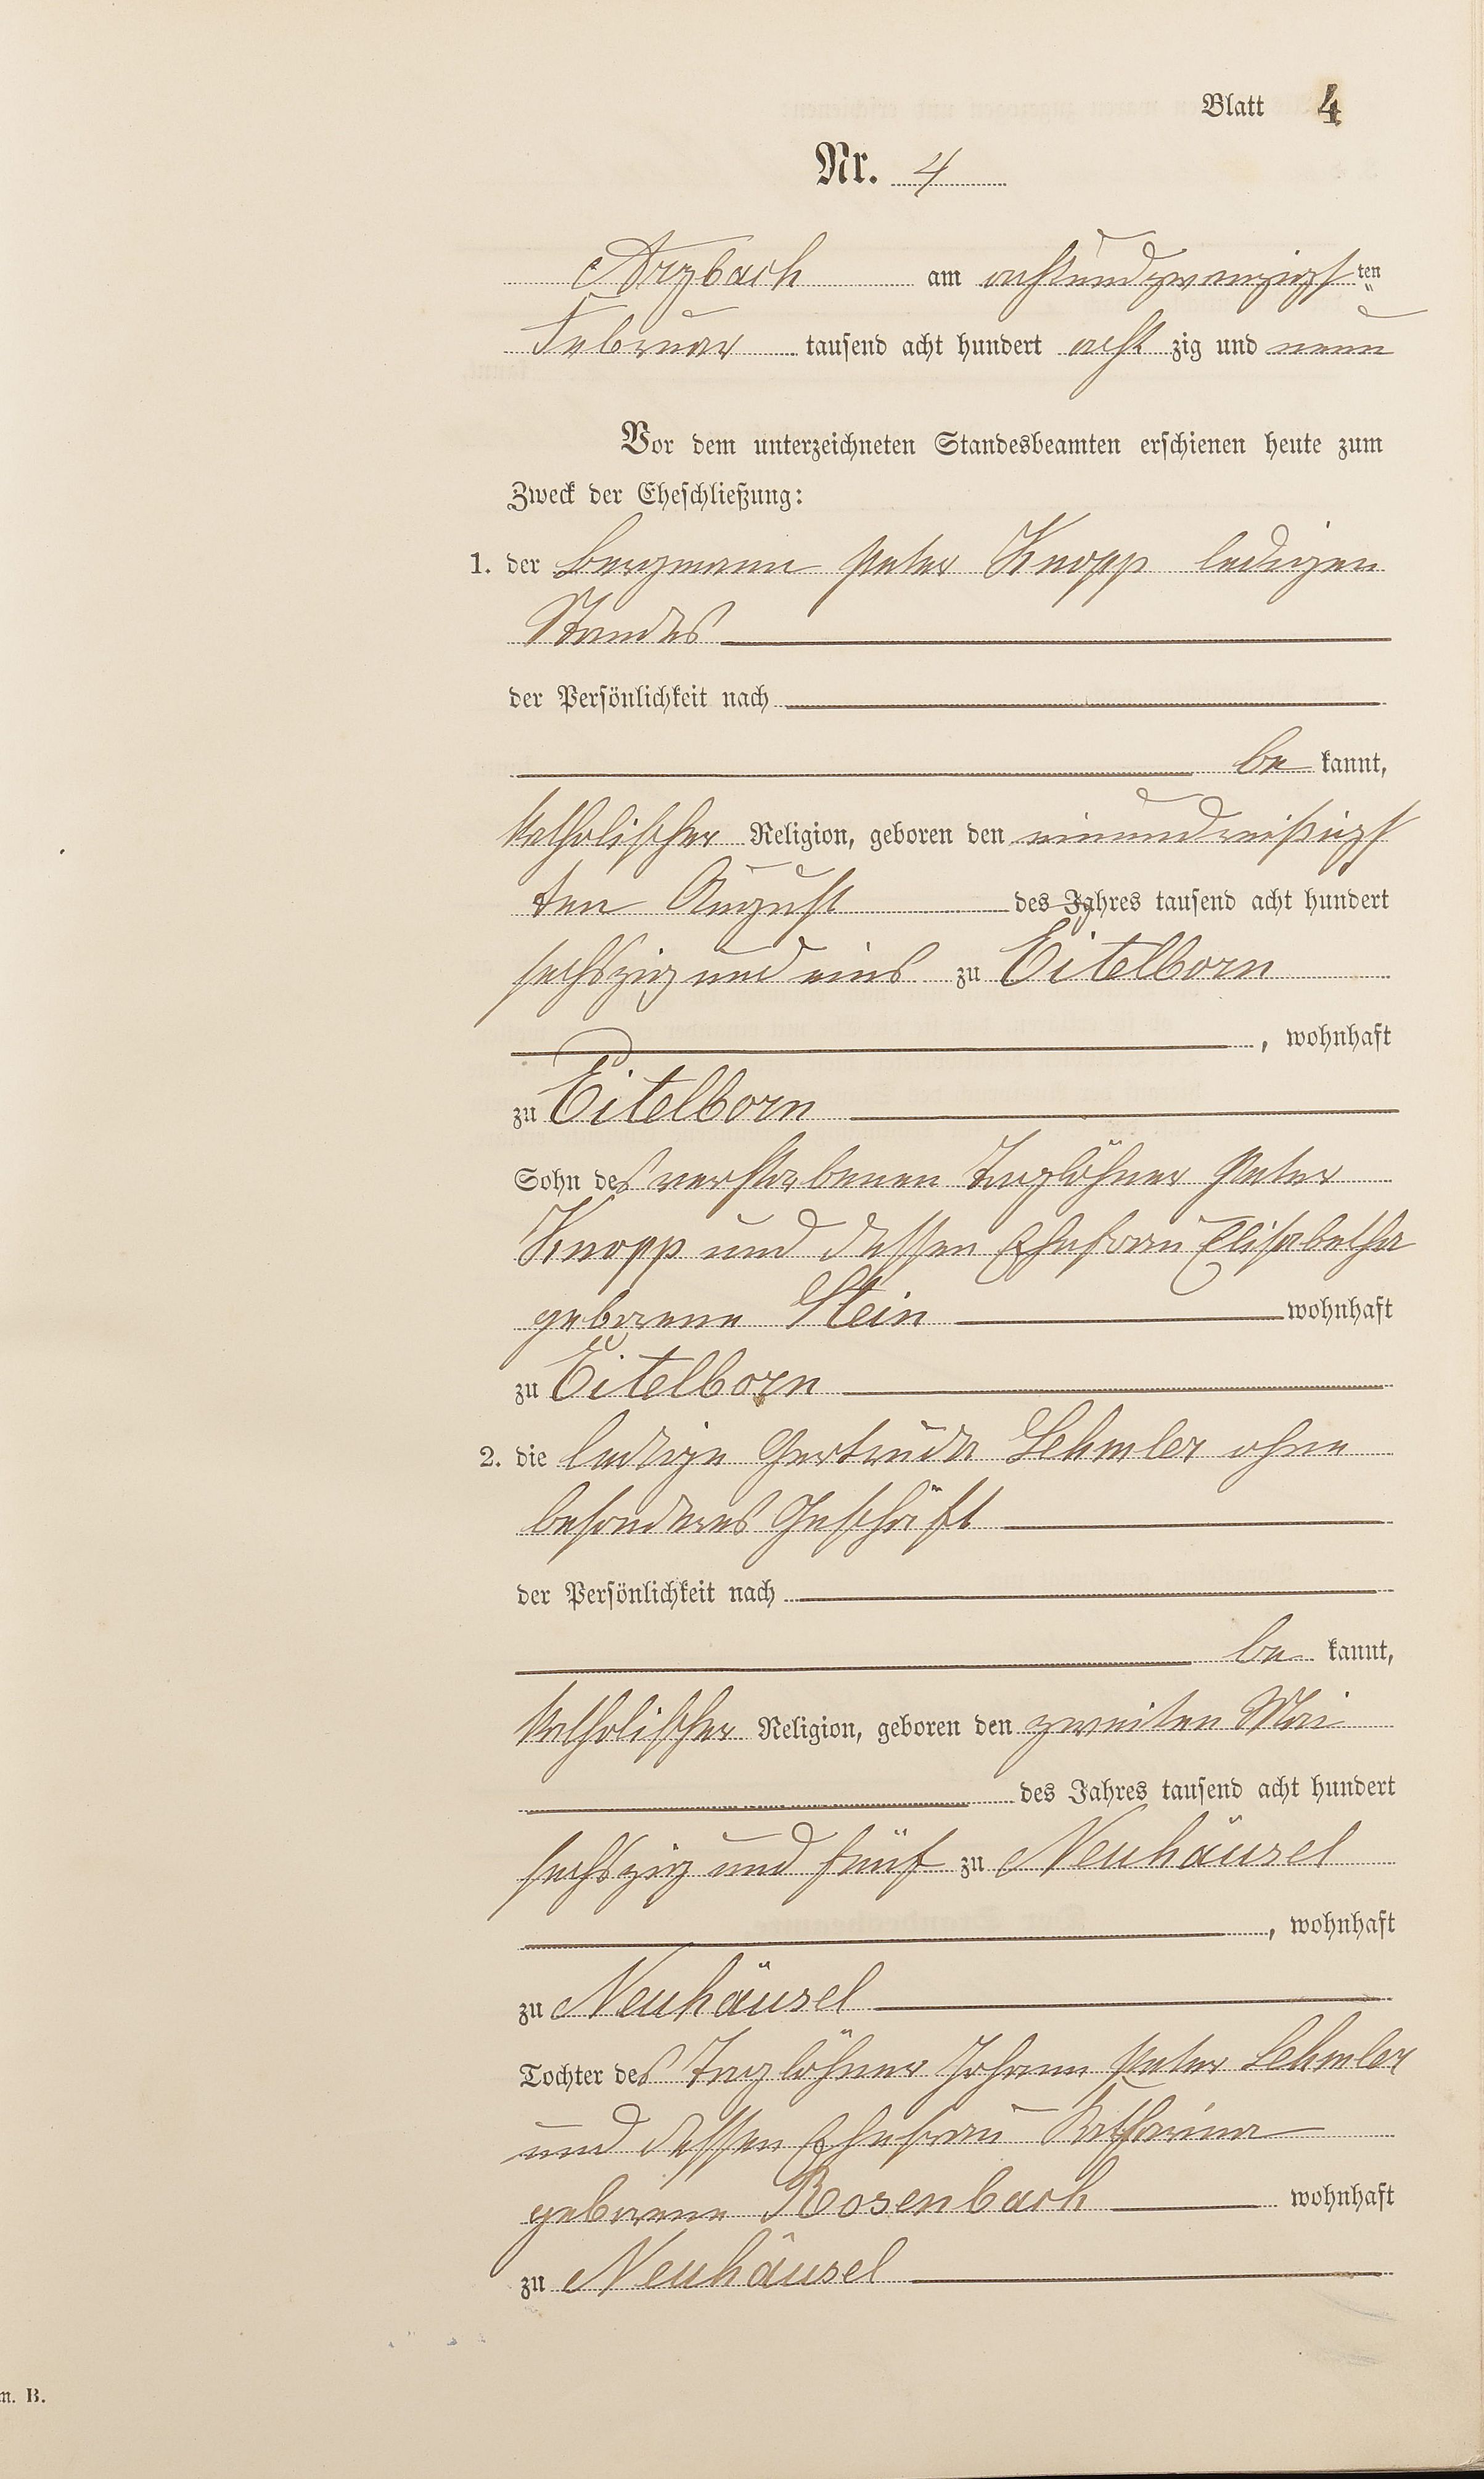 Blatt 4
Nr. 4
Arzbach am achtundzwanzigsten
Februar tausend acht hundert acht zig und neun
Vor dem unterzeichneten Standesbeamten erschienen heute zum
Zweck der Eheschließung:
1. der Bergmann Peter Knopp ledigen
Standes
der Persönlichkeit nach
be kannt,
katholischer Religion, geboren den einunddreißigst
ten August des Jahres tausend acht hundert
sechszig und eins zu Eitelborn
, wohnhaft
zu Eitelborn
Sohn des verstorbenen Taglöhner Peter
Knopp und dessen Ehefrau Elisabetha
geborene Stein wohnhaft
zu Eitelborn
2. die ledige Gertruda Lehmler ohne
besonderes Geschäft
der Persönlichkeit nach
be kannt,
katholischer Religion, geboren den zweiten Mai
des Jahres tausend acht hundert
sechszig und fünf zu Neuhäusel
, wohnhaft
zu Neuhäusel
Tochter des Taglöhner Johann Peter Lehmler
und dessen Ehefrau Katharina
geborene Rosenbach wohnhaft
zu Neuhäusel
m. B.